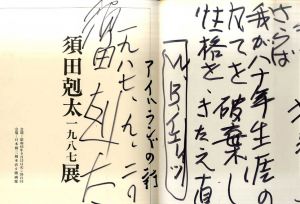 さらば
我が八十年生涯の
凡てを破棄し
性格をきたえ直
W.Bイエーツ
アイルランドの詩
一九八七、九、二〇
須田剋太
須田剋太 一九八七 展